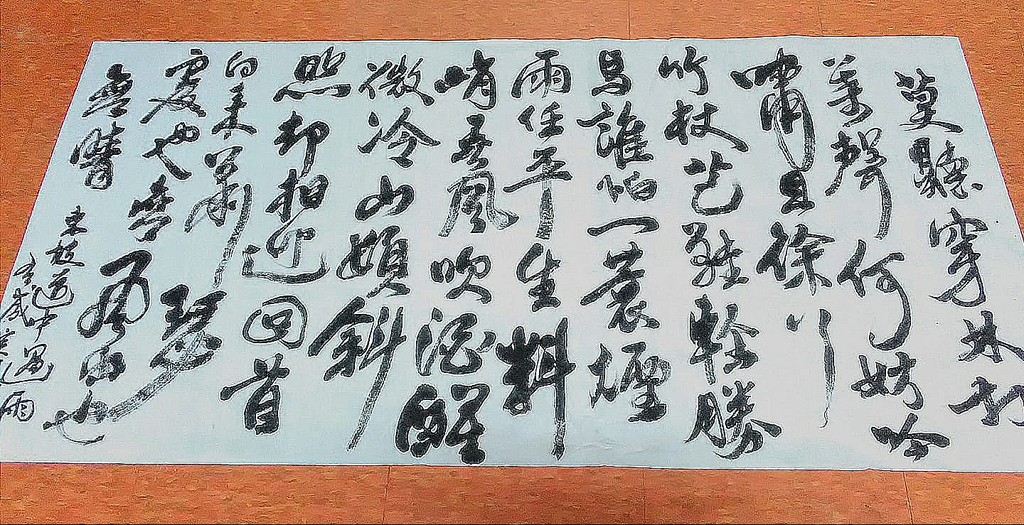 莫聽穿林打
葉聲何妨吟
嘯且徐行
竹杖芒鞋輕勝
馬誰怕一蓑煙
雨任平生料
峭春風吹酒醒
微冷山頭斜
照却相迎回首
向来蕭瑟
處也無風雨也
無晴
東坡道中遇雨